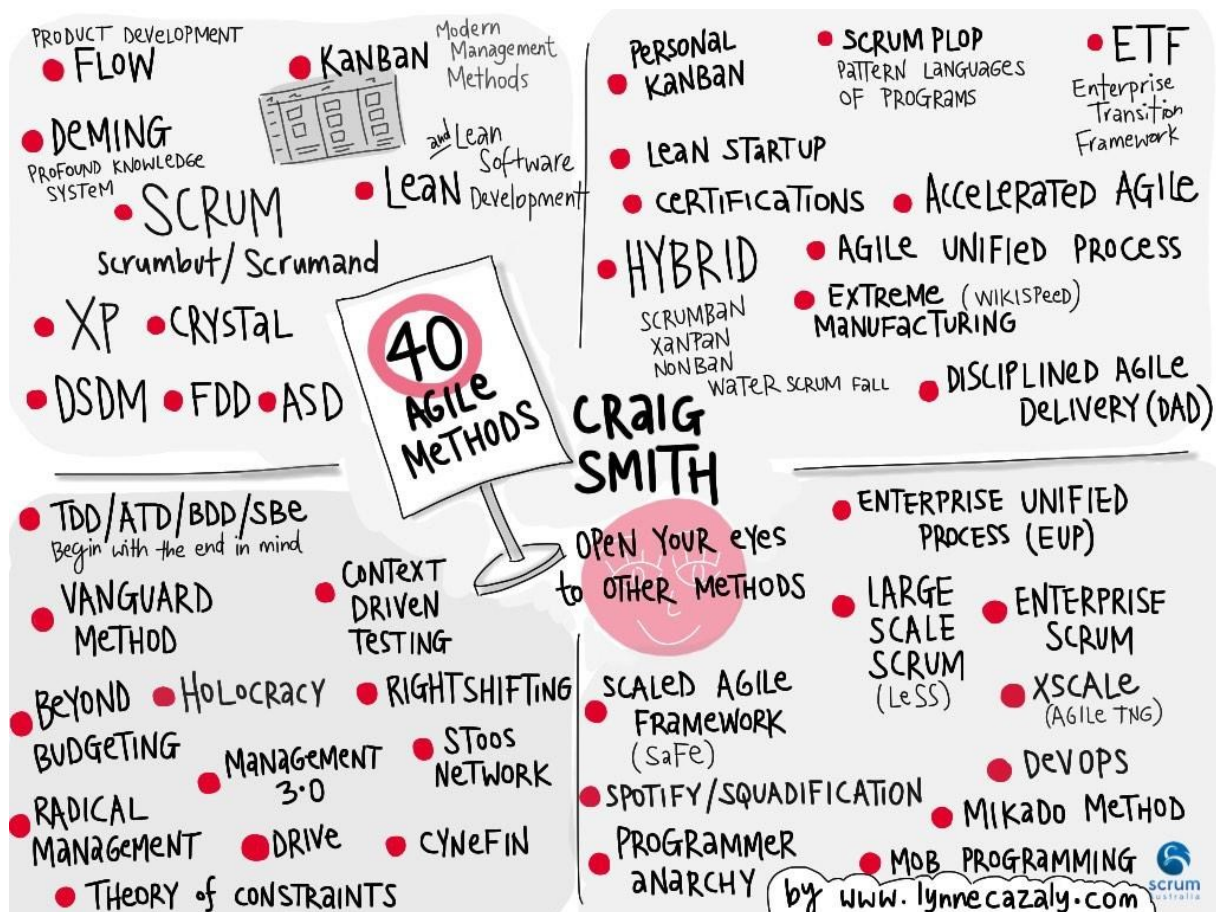 PRODUCT DEVELOPMENT
FLOW
KANBAN
Modern
Management
Methods
DEMING
PROFOUND KNOWLEDGE
SYSTEM
LEAN
and Lean
Software
Development
SCRUM
Scrumbut/Scrumand
XP
CRYSTAL
DSDM
FDD
ASD
PERSONAL
KANBAN
SCRUM PLOP
PATTERN LANGUAGES
OF PROGRAMS
ETF
Enterprise
Transition
Framework
LEAN STARTUP
CERTIFICATIONS
ACCELERATED AGILE
HYBRID
SCRUMBAN
XANPAN
NONBAN
WATER SCRUM FALL
AGILE UNIFIED PROCESS
EXTREME (WIKISPEED)
MANUFACTURING
DISCIPLINED AGILE
DELIVERY (DAD)
40
AGILE
METHODS
CRAIG
SMITH
OPEN YOUR EYES
to OTHER METHODS
TDD/ATD/BDD/SBE
Begin with the end in mind
VANGUARD
METHOD
CONTEXT
DRIVEN
TESTING
BEYOND
BUDGETING
HOLOCRACY
RIGHTSHIFTING
MANAGEMENT
3.0
STOOS
NETWORK
RADICAL
MANAGEMENT
DRIVE
CYNEFIN
THEORY of CONSTRAINTS
ENTERPRISE UNIFIED
PROCESS (EUP)
LARGE
SCALE
SCRUM
(LeSS)
ENTERPRISE
SCRUM
SCALED AGILE
FRAMEWORK
(SaFe)
XSCALE
(AGILE TNG)
DEVOPS
SPOTIFY/SQUADIFICATION
MIKADO METHOD
PROGRAMMER
ANARCHY
MOB PROGRAMMING
by www.lynnecazaly.com
scrum
australia